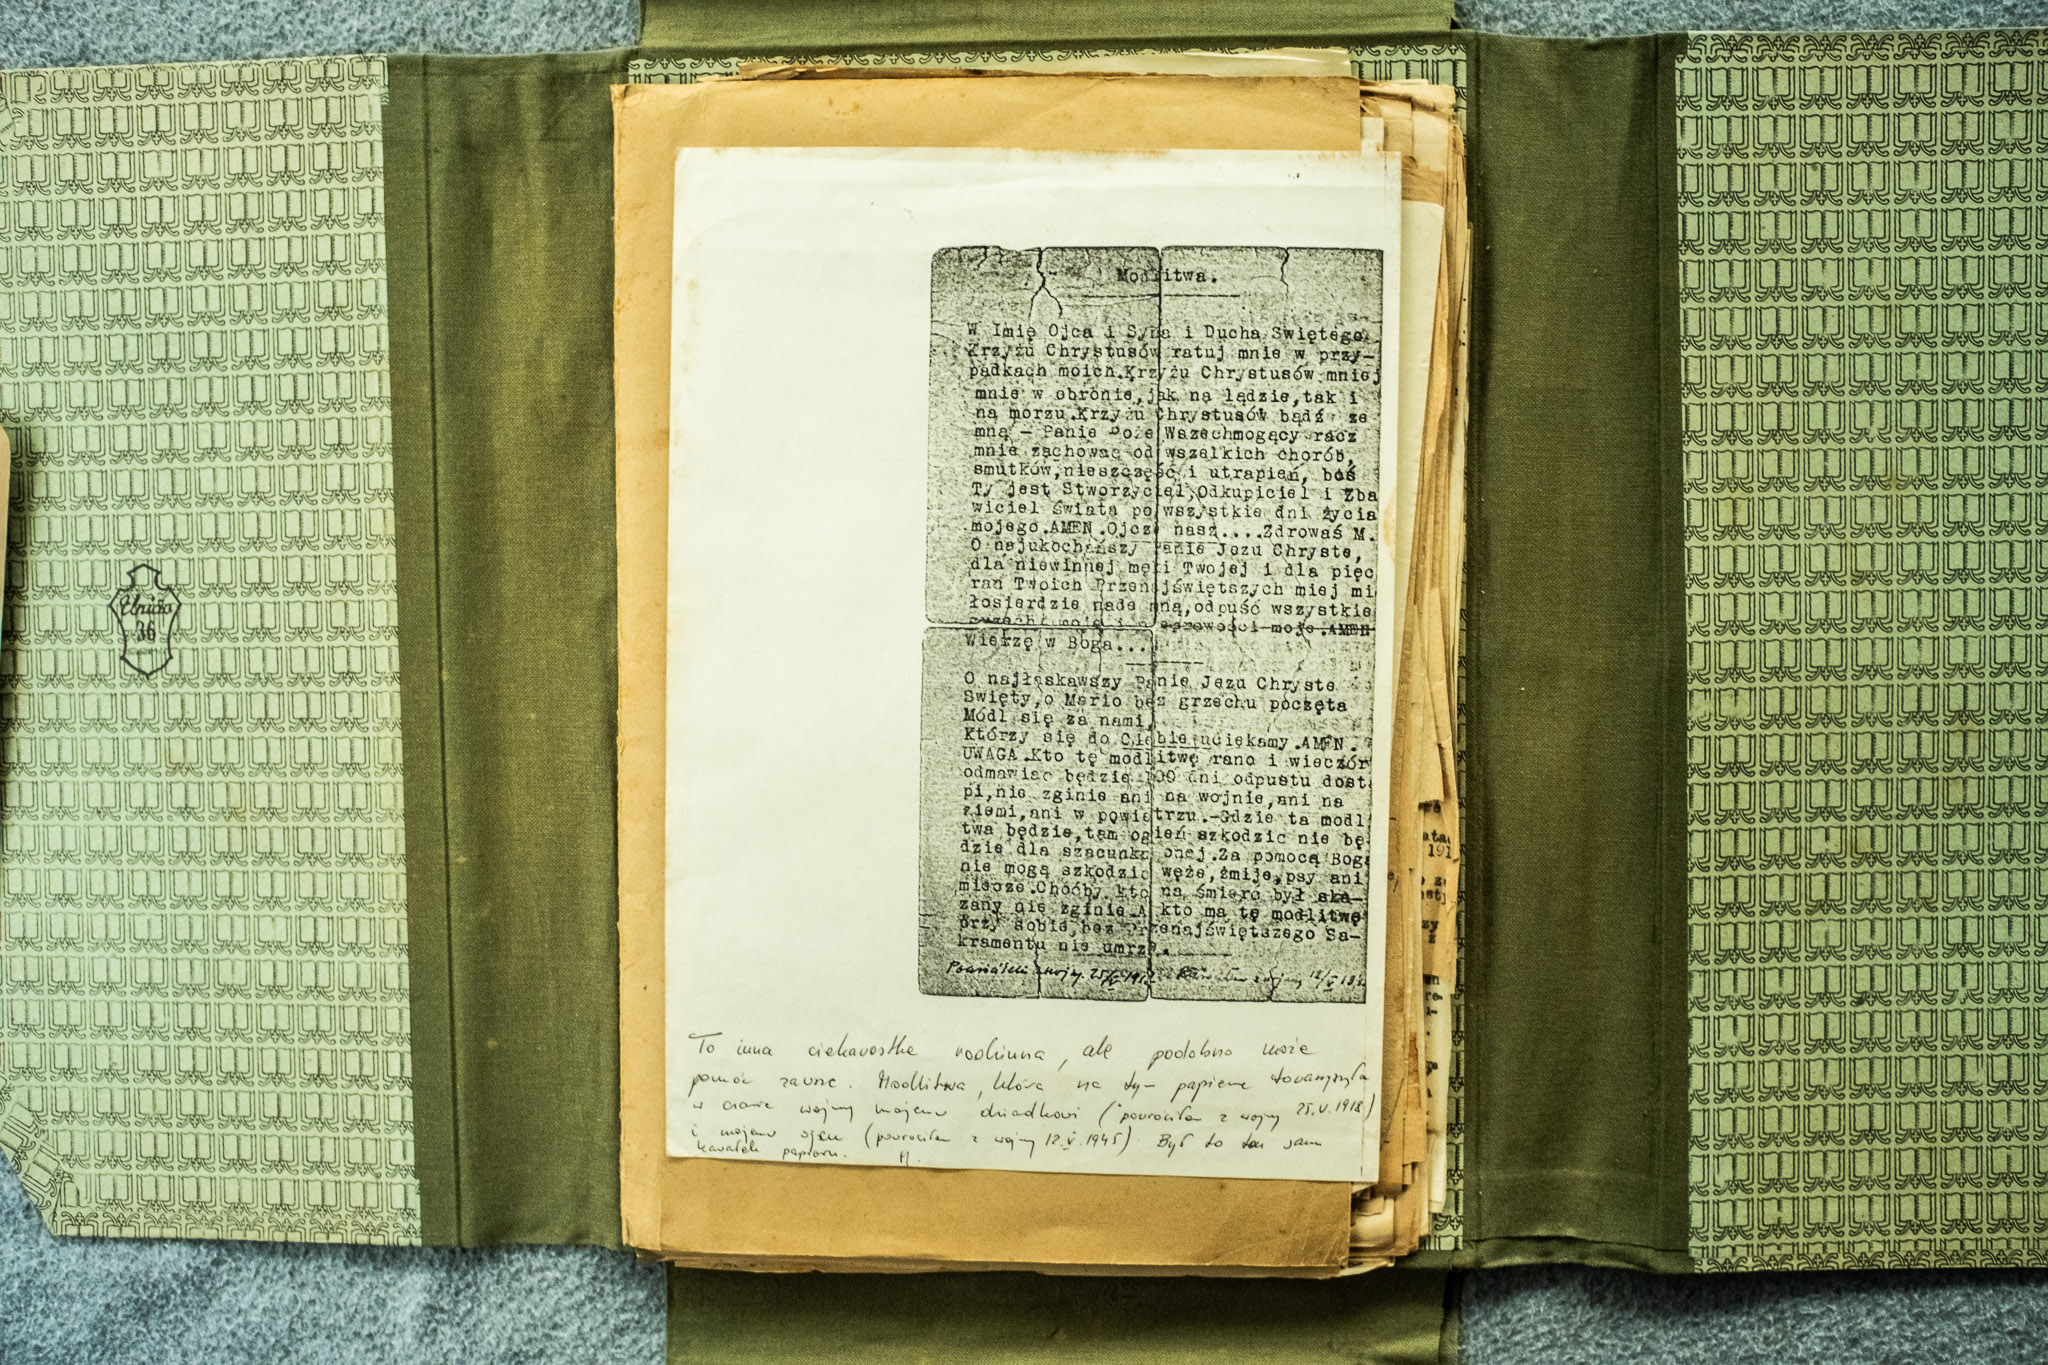 Unido
36
Modlitwa.
W Imię Ojca i Syna i Ducha Świętego
Krzyżu Chrystusów ratuj mnie w przy-
padkach moich.Krzyżu Chrystusów mniej
mnie w obronie,jak na lądzie,tak i
na morzu.Krzyżu Chrystusów bądź ze
mną - Panie Boże Wszechmogący racz
mnie zachować od wszelkich chorób,
smutków,nieszczęść i utrapień, boś
Ty jest Stworzyciel,Odkupiciel i Zba
wiciel świata po wszystkie dni życia
mojego.AMEN.Ojcze nasz....Zdrowaś M.
O najukochańszy Panie Jezu Chryste,
dla niewinnej męki Twojej i dla pięc
ran Twoich Przenajświętszych miej mi
łosierdzie nade mną,odpuść wszystkie
moje i moje.AMEN
Wierzę w Boga...
O najłaskawszy Panie Jezu Chryste
Święty,o Mario bez grzechu poczęta
Módl się za nami,
Którzy się do Ciebie uciekamy.AMEN.
UWAGA.Kto tę modlitwę rano i wieczór
odmawiac będzie 100 dni odpustu dost
pi,nie zginie ani na wojnie,ani na
ziemi,ani w powietrzu.-Gdzie ta modl
twa będzie,tam ogień szkodzic nie bę
dzie dla szacunku onej.Za pomocą Boga
nie mogą szkodzic węże,żmije,psy ani
miecze.Choćby kto na śmierc był ska-
zany nie zginie.A kto ma tę modlitwę
przy sobie,bez Przenajświętszego Sa-
kramentu nie umrze.
wojny 25/V 191 z wojny 12/V
To inna ciekawostka rodzinna, ale podobno może
pomóc zawsze. Modlitwa, która na tym papierze towarzyszyła
w czasie wojny mojemu dziadkowi (powrócił z wojny 25.V.1918)
i mojemu ojcu (powrócił z wojny 12.V.1945). Był to ten sam
kawałek papieru. M.